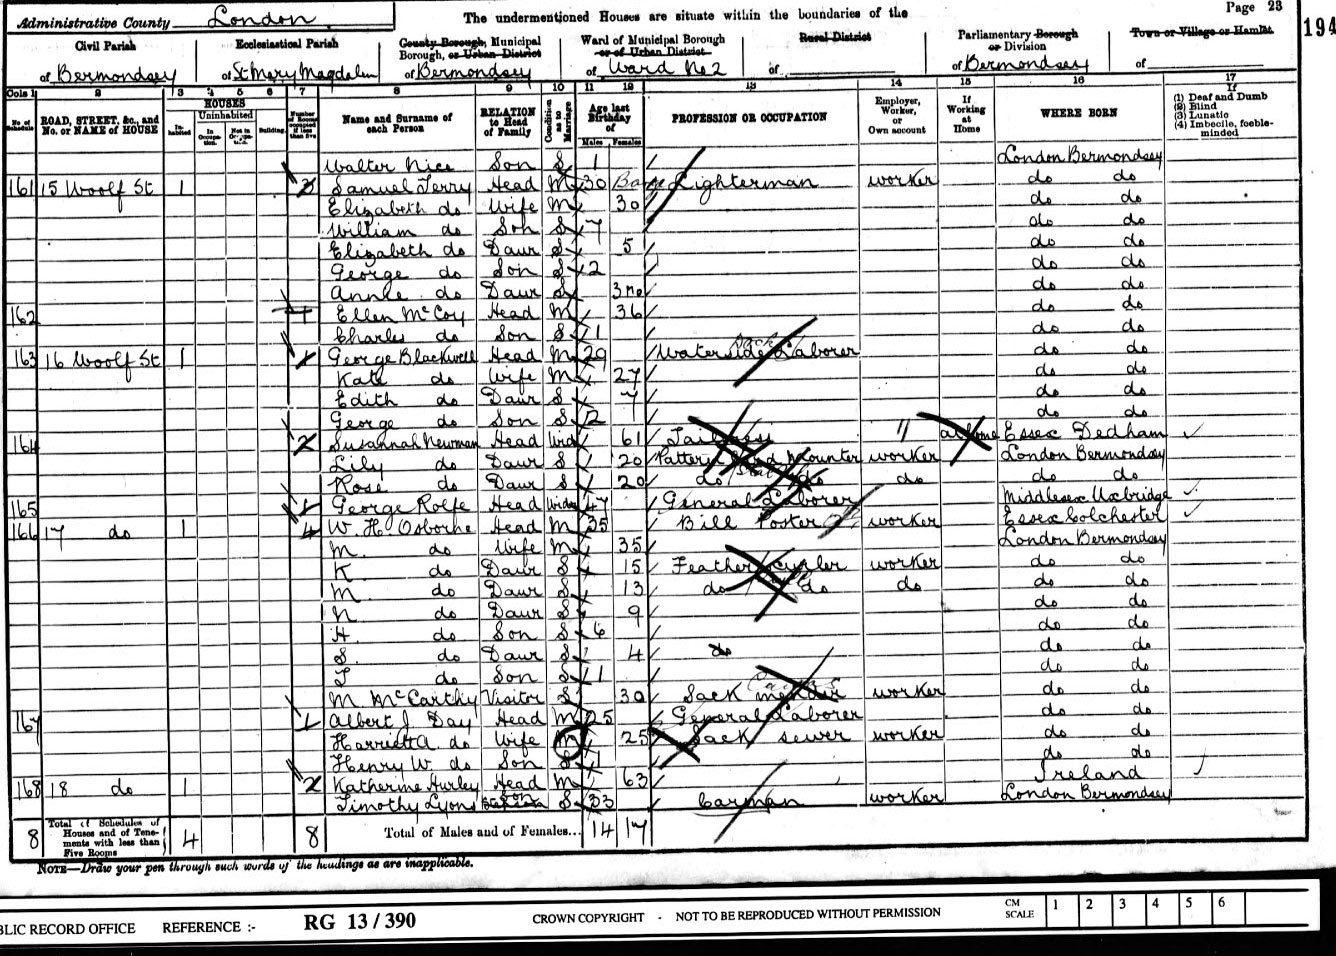 Administrative County London The undermentioned Houses are situate within the boundaries of the Page 23
194
Civil Parish Ecclesiastical Parish County Borough, Municipal Borough, or Urban District Ward of Municipal Borough or of Urban District Rural District Parliamentary Borough or Division Town or Village or Hamlet
of Bermondsey of St Mary Magdalen of Bermondsey of Ward No 2 of of Bermondsey of
Cols 1 2 3 4 5 6 7 8 9 10 11 12 13 14 15 16 17
No. of Schedule ROAD, STREET, &c., and No. or NAME of HOUSE HOUSES Inhabited Uninhabited In Occupation Not in Occupation Building Number of Rooms occupied if less than five Name and Surname of each Person RELATION to Head of Family Condition as to Marriage Age last Birthday of Males Females PROFESSION OR OCCUPATION Employer, Worker, or Own account If Working at Home WHERE BORN If (1) Deaf and Dumb (2) Blind (3) Lunatic (4) Imbecile, feeble-minded
Walter Nice Son S 1 London Bermondsey
161 15 Woolf St 1 3 Samuel Terry Head M 30 Barge Lighterman worker do do
Elizabeth do Wife M 30 do do
William do Son S 7 do do
Elizabeth do Daur S 5 do do
George do Son S 2 do do
Annie do Daur S 3mo do do
162 1 Ellen McCoy Head M 36 do do
Charles do Son S 1 do do
163 16 Woolf St 1 George Blackwell Head M 29 Waterside Dock Laborer do do
Kate do Wife M 27 do do
Edith do Daur S 7 do do
George do Son S 2 do do
164 2 Susannah Newman Head Wid 61 Tailoress " at home Essex Dedham
Lily do Daur S 20 Pattern Card Mounter worker London Bermondsey
Rose do Daur S 20 do do do do do
165 1 George Rolfe Head Widr 47 General Laborer Middlesex Uxbridge
166 17 do 1 4 W. H. Osborne Head M 35 Bill Poster worker Essex Colchester
M. do Wife M 35 London Bermondsey
K do Daur S 15 Feather Curler worker do do
M. do Daur S 13 do do do do do
N do Daur S 9 do do
H do Son S 6 do do
S. do Daur S 4 do do do
J do Son S 1 do do
M McCarthy Visitor S 30 Sack mender worker do do
167 1 Albert J. Day Head M 25 General Laborer do do
Harriett A. do Wife M 25 Sack sewer worker do do
Henry W. do Son S 1 do do
168 18 do 1 2 Katherine Hurley Head M 63 Ireland
Timothy Lyons Son S 33 Carman worker London Bermondsey
8 Total of Schedules of Houses and of Tenements with less than Five Rooms 4 8 Total of Males and of Females... 14 17
NOTE—Draw your pen through such words of the headings as are inapplicable.
BLIC RECORD OFFICE REFERENCE :- RG 13 / 390 CROWN COPYRIGHT - NOT TO BE REPRODUCED WITHOUT PERMISSION CM SCALE 1 2 3 4 5 6